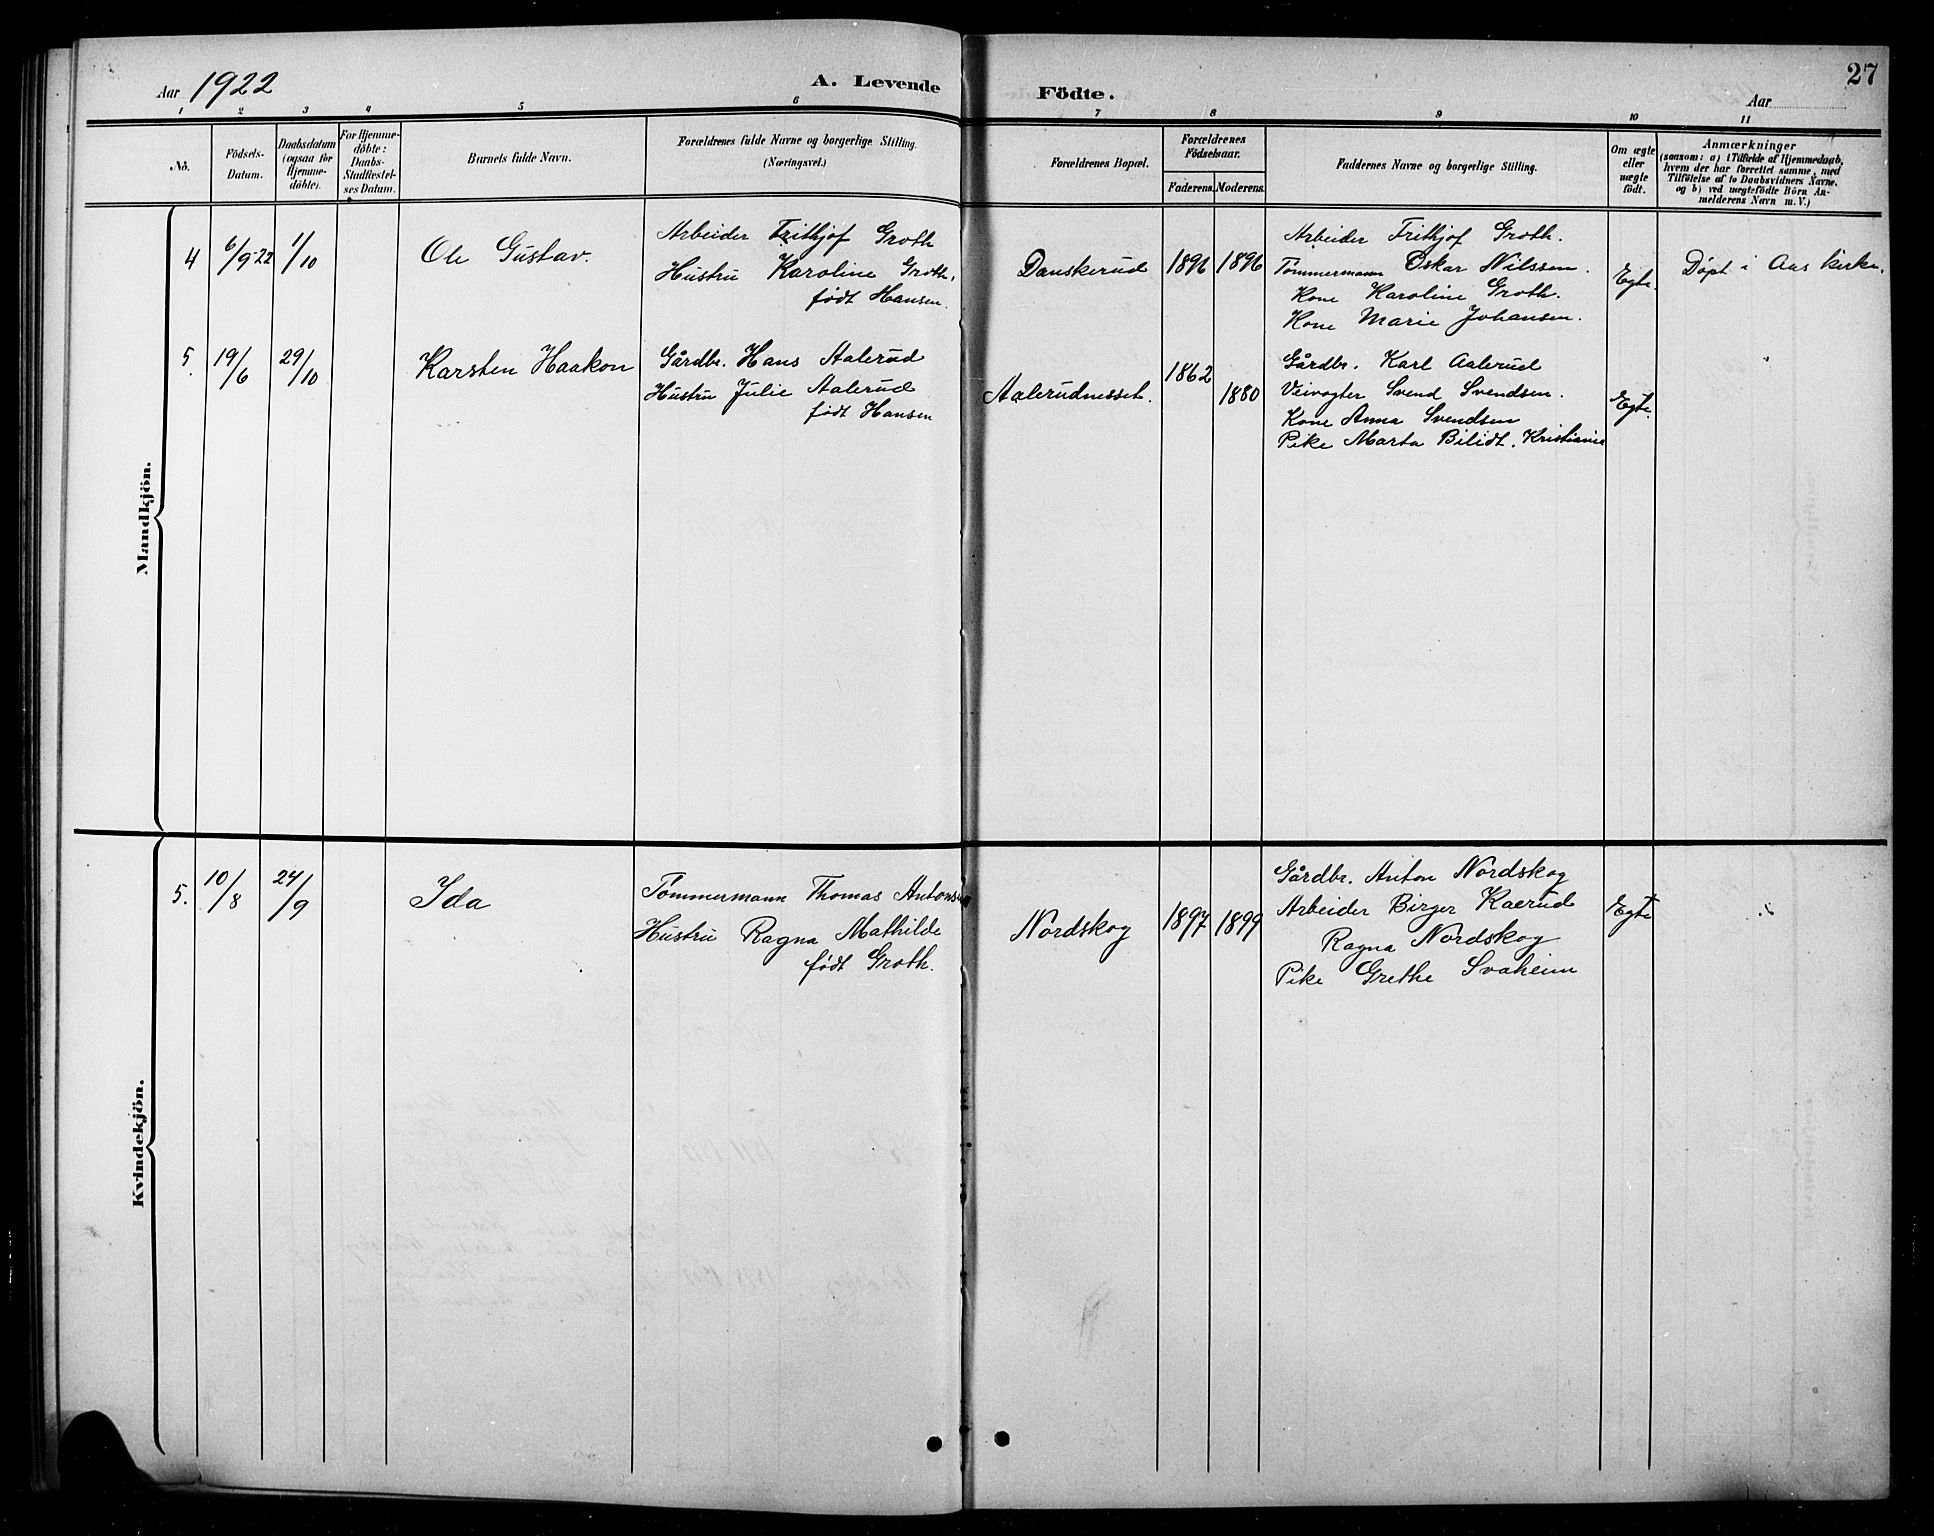 Aar 1922
A. Levende Födte.
27
Aar
1 2 3 4 5 6 7 8 9 10 11
No.
Födsels-
Datum.
Daabsdatum
(ogsaa for
Hjemme-
döbte).
For Hjemme-
döbte:
Daabs-
Stadfæstel-
ses Datum.
Barnets fulde Navn.
Forældrenes fulde Navne og borgerlige Stilling.
(Næringsvei.)
Forældrenes Bopæl.
Forældrenes
Födselsaar.
Faderens. Moderens.
Faddernes Navne og borgerlige Stilling.
Om ægte
eller
uægte
födt.
Anmærkninger
(saasom: a) i Tilfælde af Hjemmedaab,
hvem der har forrettet samme, med
Tilföielse af to Daabsvidners Navne,
og b) ved uægtefödte Börn An-
melderens Navn m. V.)
Mandkjön.
4 6/9-22 1/10
Ole Gustav.
Arbeider Frithjof Groth
Hustru Karoline Groth,
født Hansen.
Danskerud
1896 1896
Arbeider Frithjof Groth.
Tømmermann Oskar Nilssen.
Kone Karoline Groth.
Kone Marie Johansen.
Egte.
Døpt i Aas kirke.
5. 19/6 29/10
Karsten Haakon
Gårdbr. Hans Aalerud
Hustru Julie Aalerud
født Hansen
Aalerudnesset.
1862 1880
Gårdbr. Karl Aalerud
Veivogter Svend Svendsen.
Kone Anna Svendsen
Pike Marta Bilidt. Kristiania
Egte.
Kvindekjön.
5. 10/8 24/9
Ida
Tømmermann Thomas Antonsen
Hustru Ragna Mathilde
født Groth.
Nordskog
1897 1899
Gårdbr. Anton Nordskog
Arbeider Birger Kaerud
Ragna Nordskog
Pike Grethe Svaheim
Egte